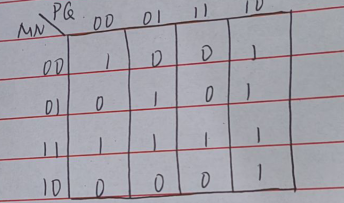 PQ 00 01 11 10
MN
00 1 0 0 1
01 0 1 0 1
11 1 1 1 1
10 0 0 0 1